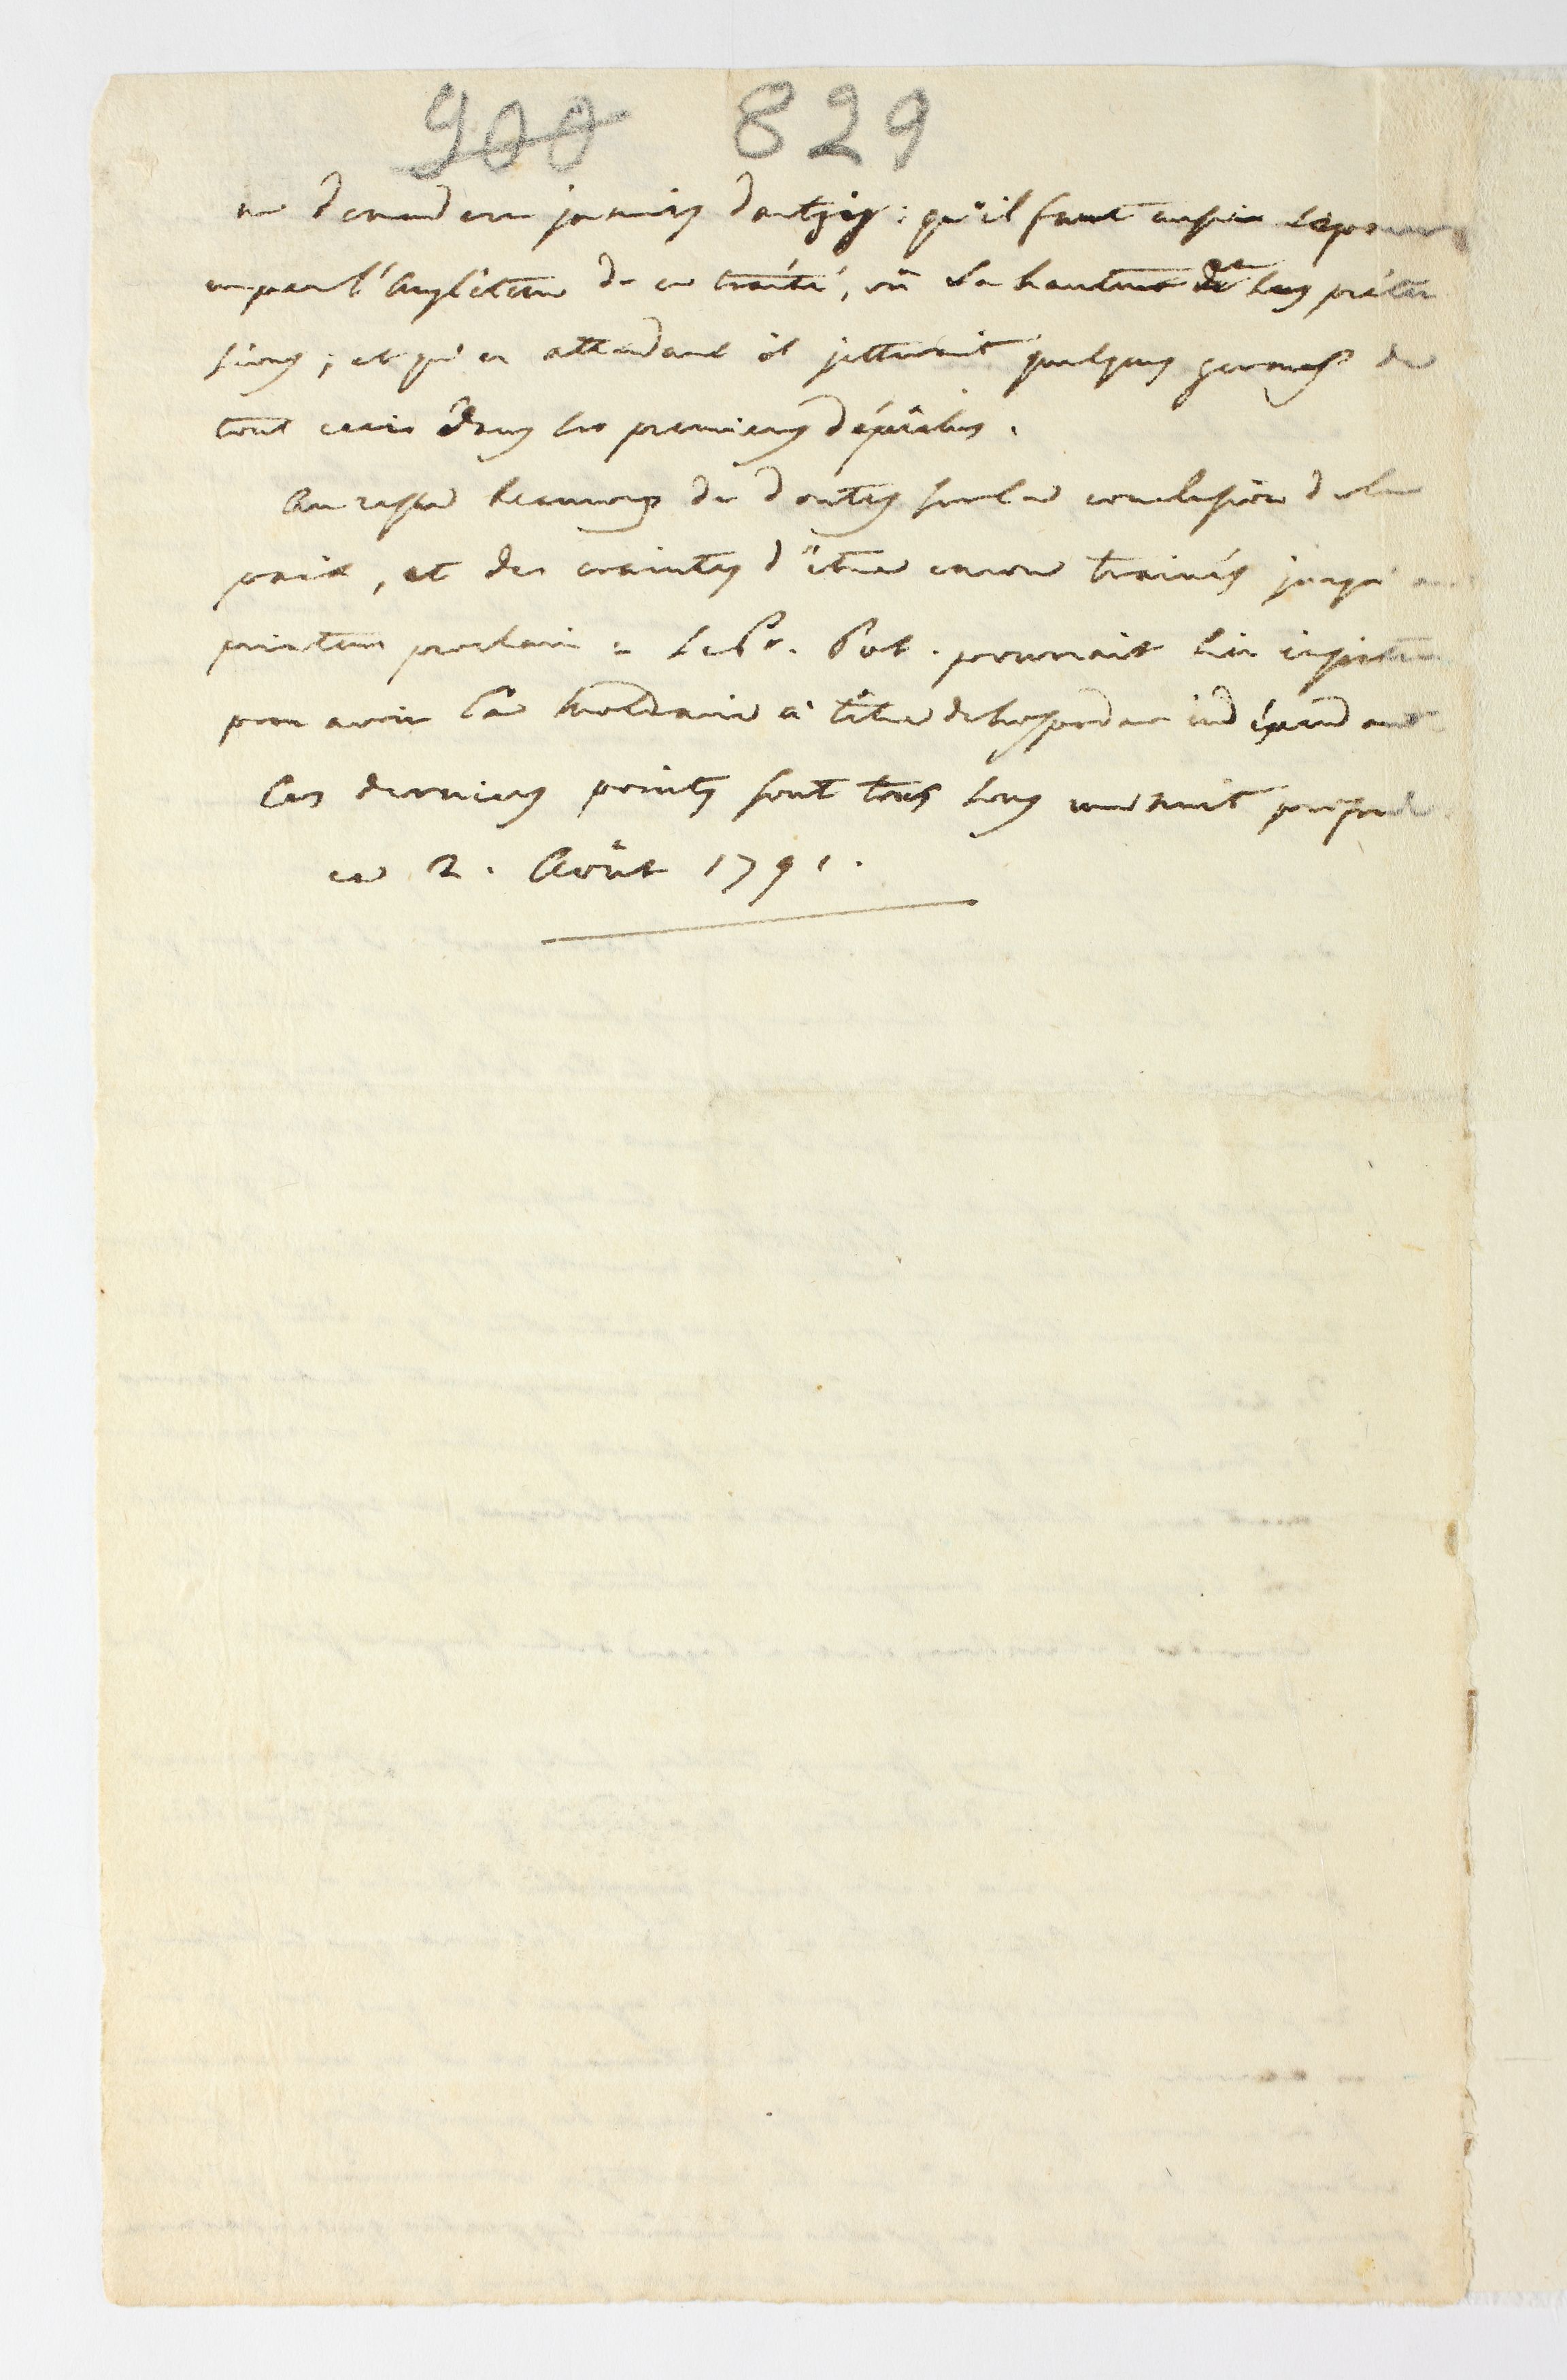 900 829
ne demandera jamais dantzig : qu'il faut aussi
un peu l'Angleterre de ce traité, vû la hauteur de ses préten
sions ; et qu'en attendant il jetteroit quelques germes de
tout ceci dans les premieres dépêches.
Au reste beaucoup de doutes sur la conclusion de la
paix, et des craintes d'être encore trainés jusqu'au
printems prochain = Le Pr. Pot. pourroit bien insister
pour avoir la Moldavie à titre de hospodar indépendant
Ces derniers points sont tous sous
ce 2. Août 1791.